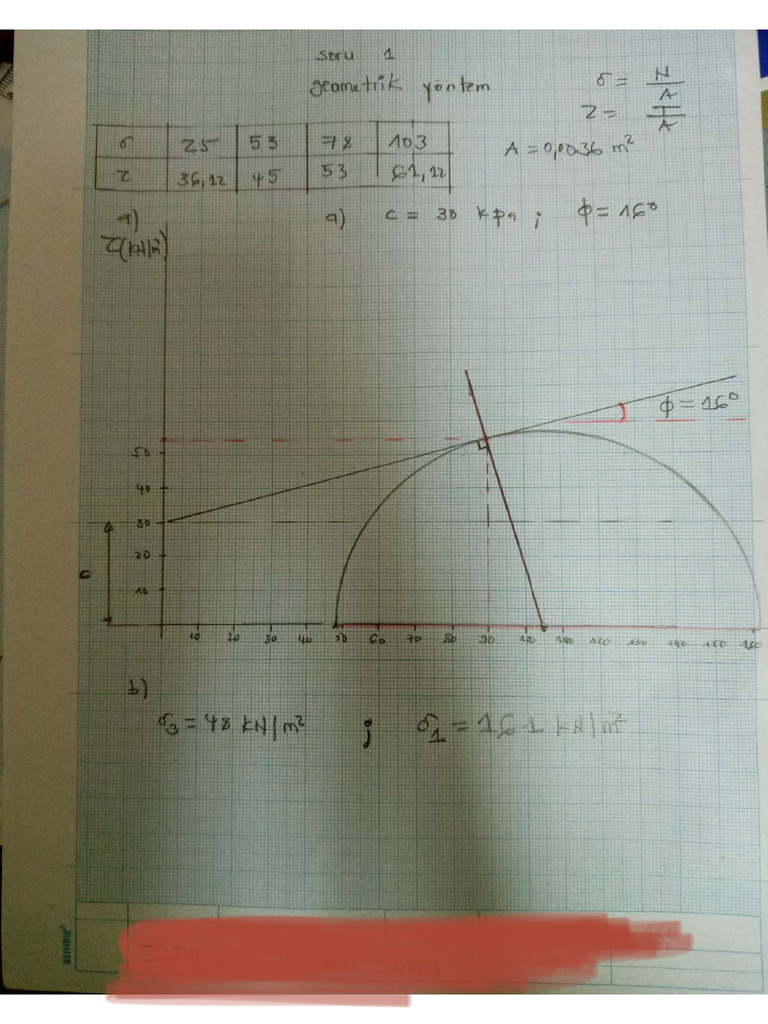 soru 1
geometrik yöntem
σ = N/A
τ = T/A
σ 25 53 78 103
τ 36,12 45 53 61,12
A = 0,0036 m²
a) a) c = 30 kpa ; ϕ = 16°
τ(kN/m²)
ϕ = 16°
50
40
30
20
10
c
10 20 30 40 50 60 70 80 90 100 110 120 130 140 150 160
b)
σ3 = 48 kN/m² ; σ1 = 161 kN/m²